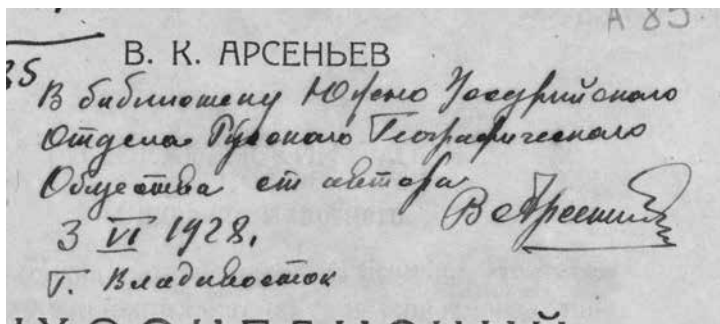 А 85
35
В. К. АРСЕНЬЕВ
В библиотеку Южно Уссурийского
Отдела Русского Географического
Общества от автора
В Арсеньев
3 VI 1928.
г. Владивосток